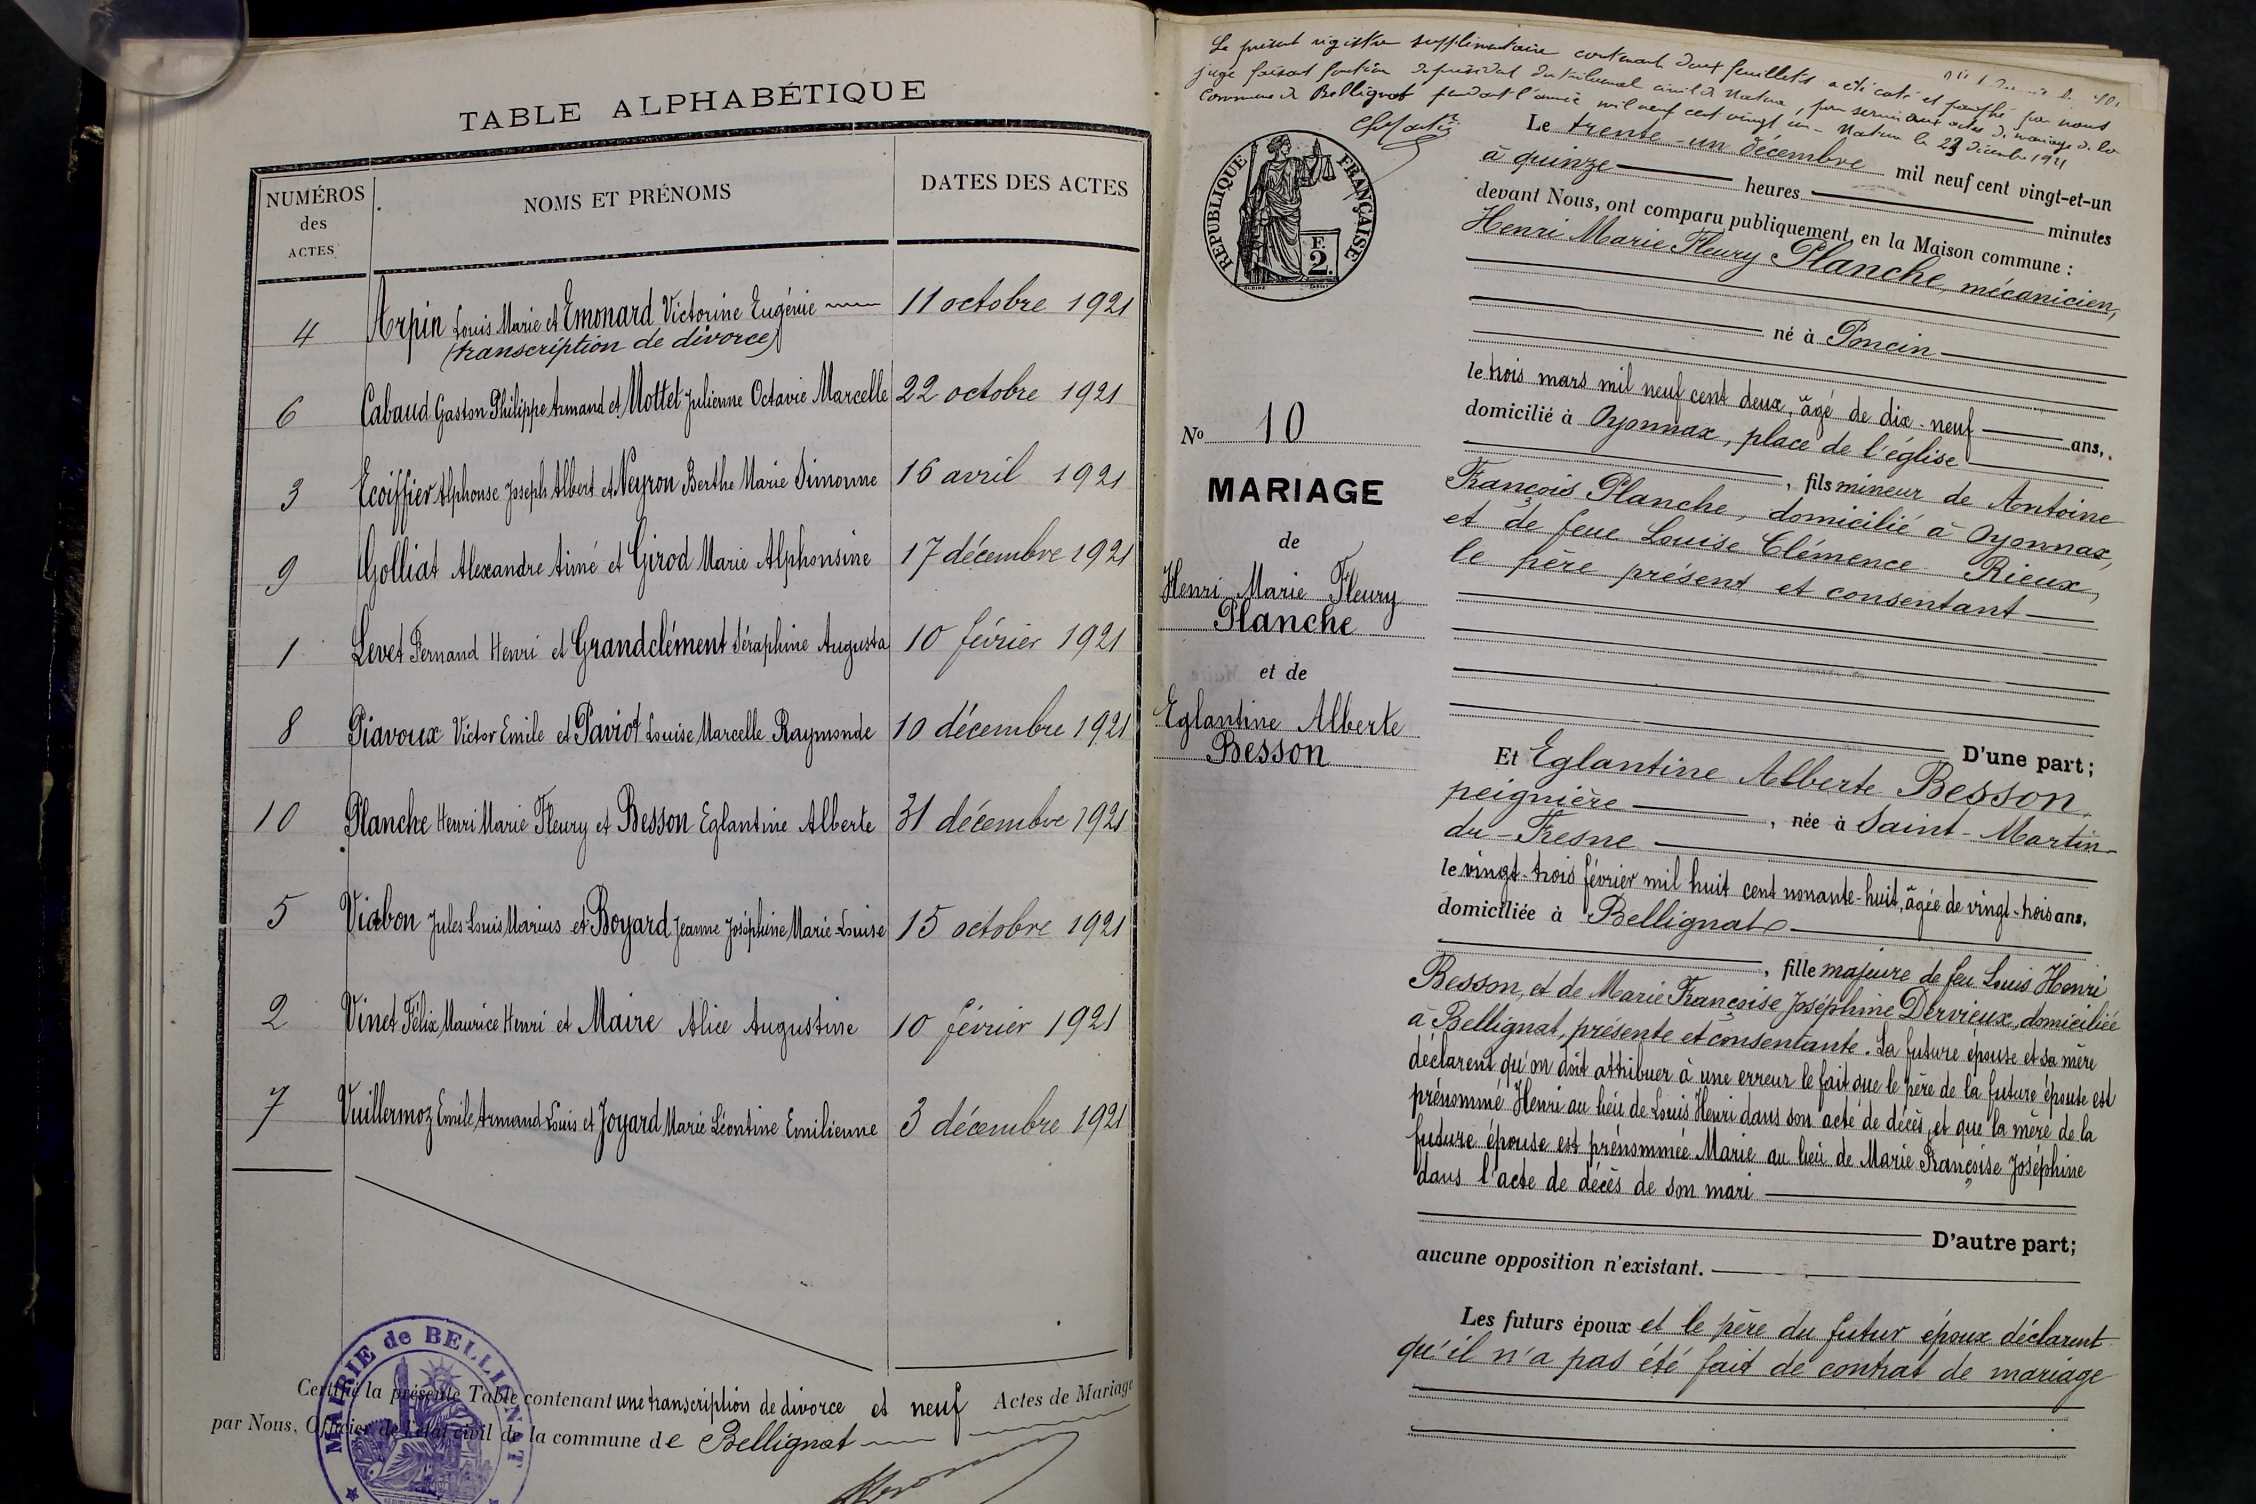 TABLE ALPHABÉTIQUE
NUMÉROS des ACTES
NOMS ET PRÉNOMS
DATES DES ACTES
4 Arpin Louis Marie et Emonard Victorine Eugénie 11 octobre 1921
(transcription de divorce)
6 Cabaud Gaston Philippe Armand et Mottet Julienne Octavie Marcelle 22 octobre 1921
3 Ecoiffier Alphonse Joseph Albert et Neyron Berthe Marie Simonne 16 avril 1921
9 Golliat Alexandre Aimé et Girod Marie Alphonsine 17 décembre 1921
1 Levet Fernand Henri et Grandclément Séraphine Augusta 10 février 1921
8 Piavoux Victor Emile et Paviot Louise Marcelle Raymonde 10 décembre 1921
10 Planche Henri Marie Fleury et Besson Eglantine Alberte 31 décembre 1921
5 Viabon Jules Louis Marius et Boyard Jeanne Joséphine Marie-Louise 15 octobre 1921
2 Vinet Félix Maurice Henri et Maire Alice Augustine 10 février 1921
7 Vuillermoz Emile Armand Louis et Joyard Marie Léontine Emilienne 3 décembre 1921
Certifié la présente Table contenant une transcription de divorce et neuf Actes de Mariage
par Nous, Officier de l'état civil de la commune de Bellignat
MAIRIE de BELLIGNAT
Le présent registre supplémentaire contenant deux feuillets a été coté et paraphé par nous
juge faisant fonction de président du tribunal civil de Nantua, pour servir aux actes de mariage de la
Commune de Bellignat pendant l'année mil neuf cent vingt un - Nantua le 23 décembre 1921
RÉPUBLIQUE FRANÇAISE
F.
2.
No 10
MARIAGE
de
Henri Marie Fleury
Planche
et de
Eglantine Alberte
Besson
Le trente-un décembre mil neuf cent vingt-et-un
à quinze heures minutes
devant Nous, ont comparu publiquement en la Maison commune :
Henri Marie Fleury Planche, mécanicien,
né à Poncin
le trois mars mil neuf cent deux, âgé de dix-neuf ans,
domicilié à Oyonnax, place de l'église
, fils mineur de Antoine
François Planche, domicilié à Oyonnax,
et de feue Louise Clémence Rieux,
le père présent et consentant
D'une part;
Et Eglantine Alberte Besson,
peignière , née à Saint-Martin-
du-Fresne
le vingt-trois février mil huit cent nonante-huit, âgée de vingt-trois ans,
domiciliée à Bellignat
, fille majeure de feu Louis Henri
Besson, et de Marie Françoise Joséphine Dervieux, domiciliée
à Bellignat, présente et consentante. La future épouse et sa mère
déclarent qu'on doit attribuer à une erreur le fait que le père de la future épouse est
prénommé Henri au lieu de Louis Henri dans son acte de décès, et que la mère de la
future épouse est prénommée Marie au lieu de Marie Françoise Joséphine
dans l'acte de décès de son mari
D'autre part;
aucune opposition n'existant.
Les futurs époux et le père du futur époux déclarent
qu'il n'a pas été fait de contrat de mariage